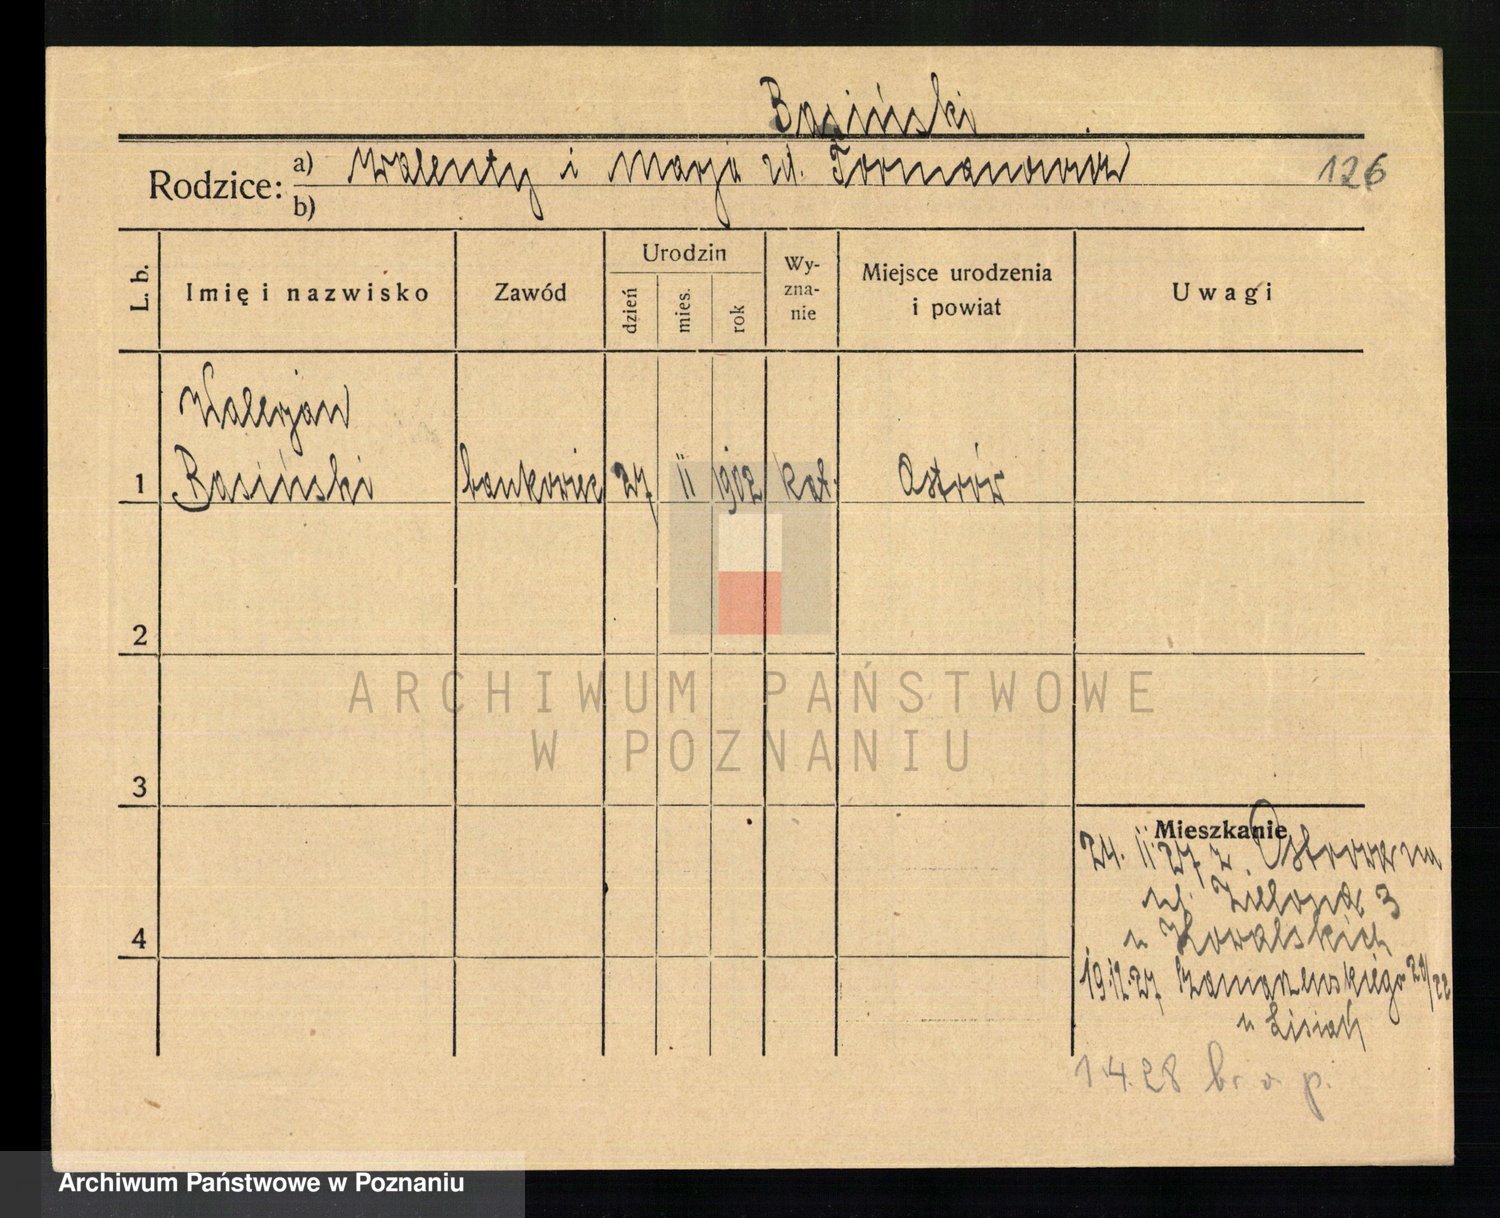 Basiński
Rodzice: a) Walenty i Marja zd. Formanowicz 126
b)
L. b. Imię i nazwisko Zawód Urodzin dzień mies. rok Wy-zna-nie Miejsce urodzenia i powiat Uwagi
Walerjan
1 Basiński bankowiec 27 II 1902 kat. Ostrów
2
ARCHIWUM PAŃSTWOWE
W POZNANIU
3
Mieszkanie
24. II 27 z Ostrowa na
ul. Zielona 3
4
u Kowalskich
19.12.27
u
1.4.28 b. o. p.
Archiwum Państwowe w Poznaniu